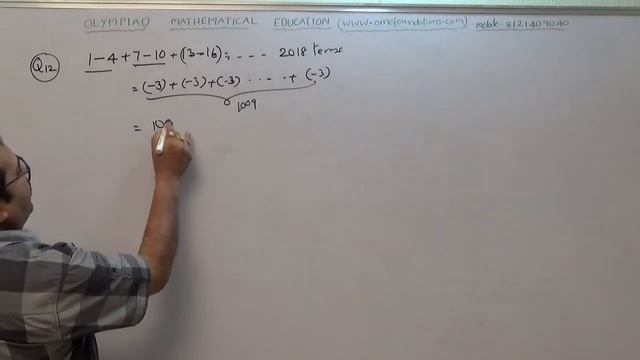 OLYMPIAD MATHEMATICAL EDUCATION (www.omefoundations.com) mobile - 8121409040
Q12 1-4+7-10+(13-16)+ - - - 2018 terms
= (-3)+(-3)+(-3) ..... + (-3)
1009
= 100